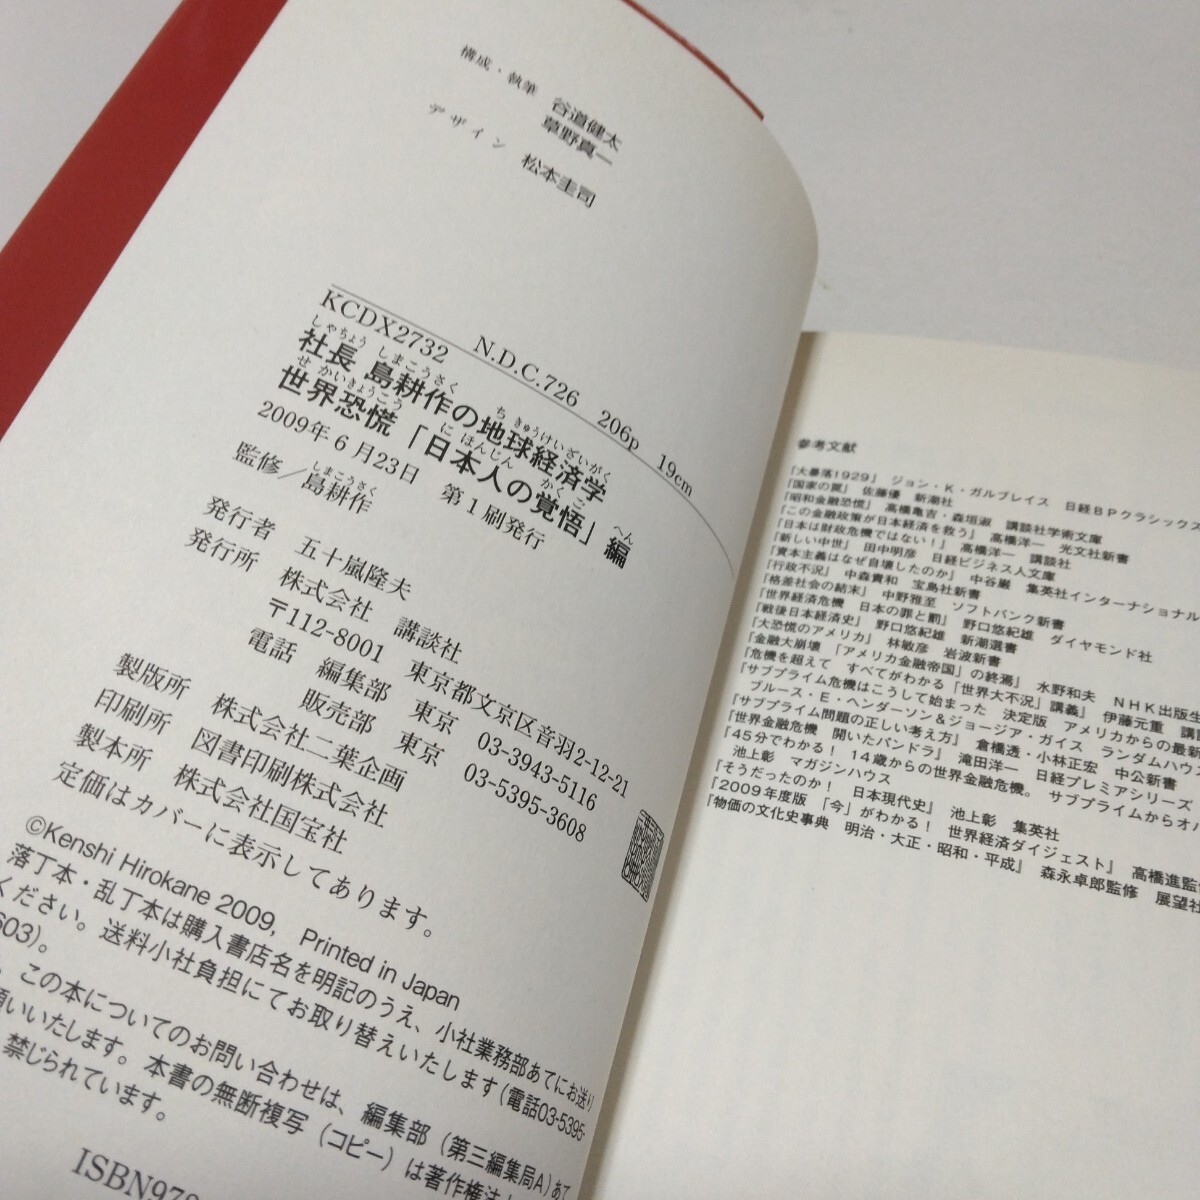 構成・執筆　谷道健太
草野真一
デザイン　松本圭司
KCDX2732　N.D.C.726　206p　19cm
しゃちょう しまこうさく ちきゅうけいざいがく
社長 島耕作の地球経済学
せかいきょうこう にほんじん かくご へん
世界恐慌「日本人の覚悟」編
2009年6月23日　第1刷発行
しまこうさく
監修／島耕作
発行者　五十嵐隆夫
発行所　株式会社 講談社
〒112-8001　東京都文京区音羽2-12-21
電話　編集部　東京　03-3943-5116
販売部　東京　03-5395-3608
製版所　株式会社二葉企画
印刷所　図書印刷株式会社
製本所　株式会社国宝社
定価はカバーに表示してあります。
©Kenshi Hirokane 2009, Printed in Japan
落丁本・乱丁本は購入書店名を明記のうえ、小社業務部あてにお送り
ください。送料小社負担にてお取り替えいたします（電話03-5395-
603）。
、この本についてのお問い合わせは、編集部（第三編集局A）あて
願いいたします。本書の無断複写（コピー）は著作権法
禁じられています。
ISBN978
参考文献
『大暴落1929』　ジョン・K・ガルブレイス　日経BPクラシックス
『国家の罠』　佐藤優　新潮社
『昭和金融恐慌』　高橋亀吉・森垣淑　講談社学術文庫
『この金融政策が日本経済を救う』　高橋洋一　光文社新書
『日本は財政危機ではない！』　高橋洋一　講談社
『新しい中世』　田中明彦　日経ビジネス人文庫
『資本主義はなぜ自壊したのか』　中谷巌　集英社インターナショナル
『行政不況』　中森貴和　宝島社新書
『格差社会の結末』　中野雅至　ソフトバンク新書
『世界経済危機　日本の罪と罰』　野口悠紀雄　ダイヤモンド社
『戦後日本経済史』　野口悠紀雄　新潮選書
『大恐慌のアメリカ』　林敏彦　岩波新書
『金融大崩壊　「アメリカ金融帝国」の終焉』　水野和夫　NHK出版生
『危機を超えて　すべてがわかる「世界大不況」講義』　伊藤元重　講談
『サブプライム危機はこうして始まった　決定版　アメリカからの最新
ブルース・E・ヘンダーソン＆ジョージア・ガイス　ランダムハウス
『サブプライム問題の正しい考え方』　倉橋透・小林正宏　中公新書
『世界金融危機　開いたパンドラ』　滝田洋一　日経プレミアシリーズ
『45分でわかる！　14歳からの世界金融危機。　サブプライムからオバ
池上彰　マガジンハウス
『そうだったのか！　日本現代史』　池上彰　集英社
『2009年度版　「今」がわかる！　世界経済ダイジェスト』　高橋進監修
『物価の文化史事典　明治・大正・昭和・平成』　森永卓郎監修　展望社